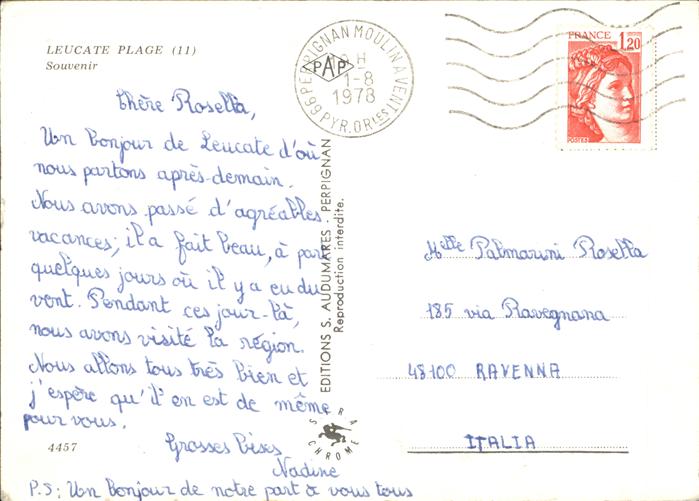 LEUCATE PLAGE (11)
Souvenir
Chère Rosella,
Un bonjour de Leucate d'où
nous partons après-demain.
Nous avons passé d'agréables
vacances; il a fait beau, à part
quelques jours où il y a eu du
vent. Pendant ces jour-là,
nous avons visité la région.
Nous allons tous très bien et
j'espère qu'il en est de même
pour vous.
Grosses bises
Nadine
P.S: Un bonjour de notre part à vous tous
4457
EDITIONS S. AUDUMARES - PERPIGNAN
Reproduction interdite.
S RA
CHROME
66 PERPIGNAN MOULIN A VENT
PAP
H
1-8
1978
PYR. OR LES
FRANCE 1,20
POSTES
Melle Palmarini Rosella
185 via Ravegnana
48100 RAVENNA
ITALIA